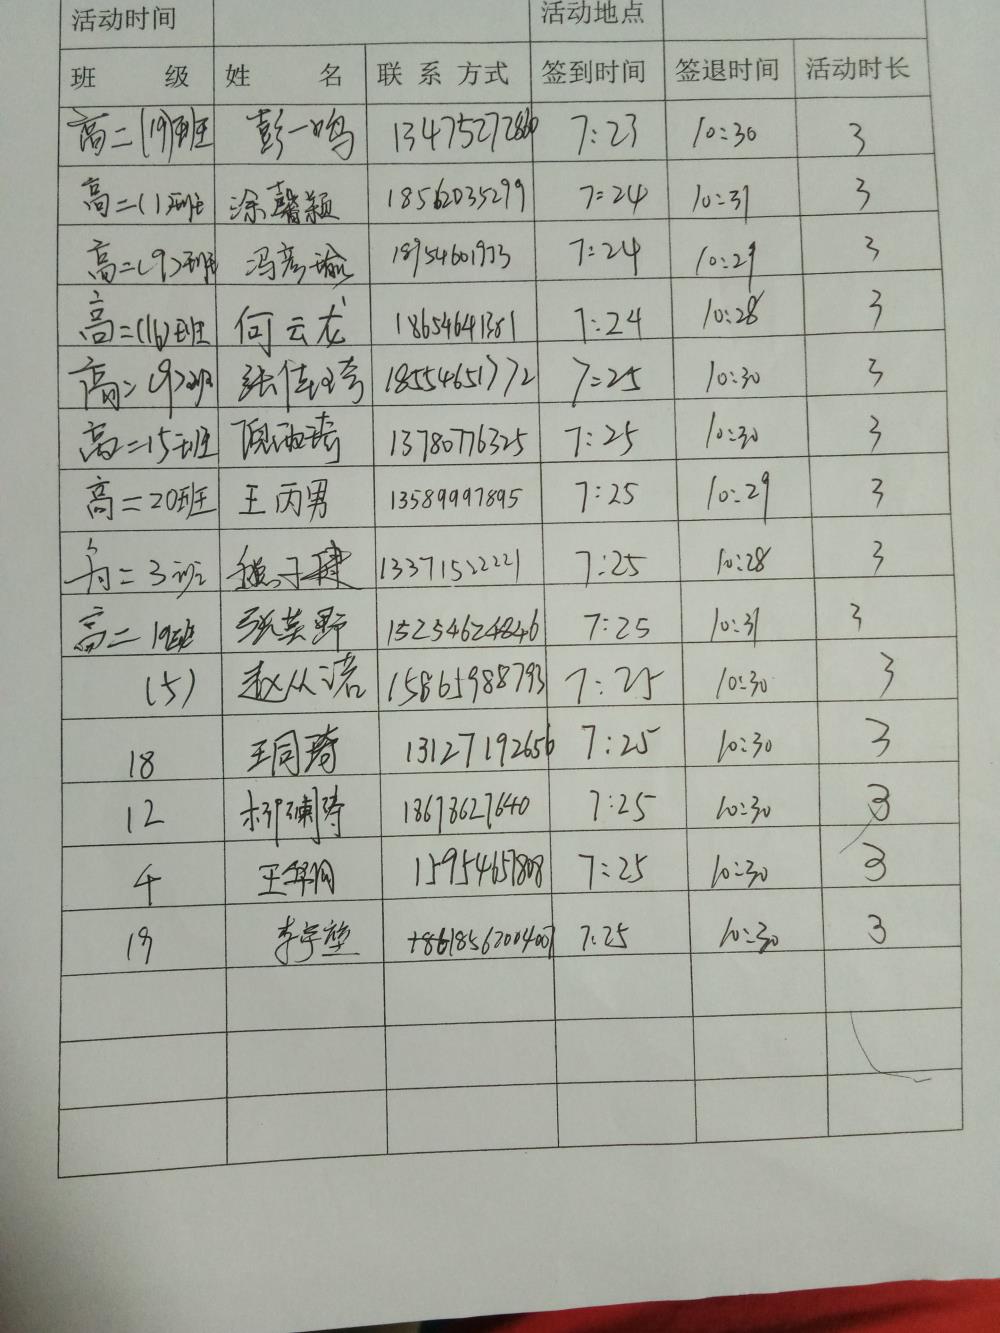 活动时间 活动地点
班 级 姓 名 联系方式 签到时间 签退时间 活动时长
高二(19)班 彭一鸣 13475272860 7:23 10:30 3
高二(1)班 涂馨颖 18562035299 7:24 10:31 3
高二(9)班 冯彦瑜 18954601933 7:24 10:29 3
高二(16)班 何云龙 18654641381 7:24 10:28 3
高二(9)班 18554651772 7:25 10:30 3
高二15班 13780776325 7:25 10:30 3
高二20班 王丙男 13589997895 7:25 10:29 3
高二3班 13371522221 7:25 10:28 3
高二19班 张英野 15254624846 7:25 10:31 3
(5) 赵从浩 15865988793 7:25 10:30 3
18 王同琦 13127192656 7:25 10:30 3
12 18678627640 7:25 10:30 3
4 15954657808 7:25 10:30 3
19 +8618562004007 7:25 10:30 3